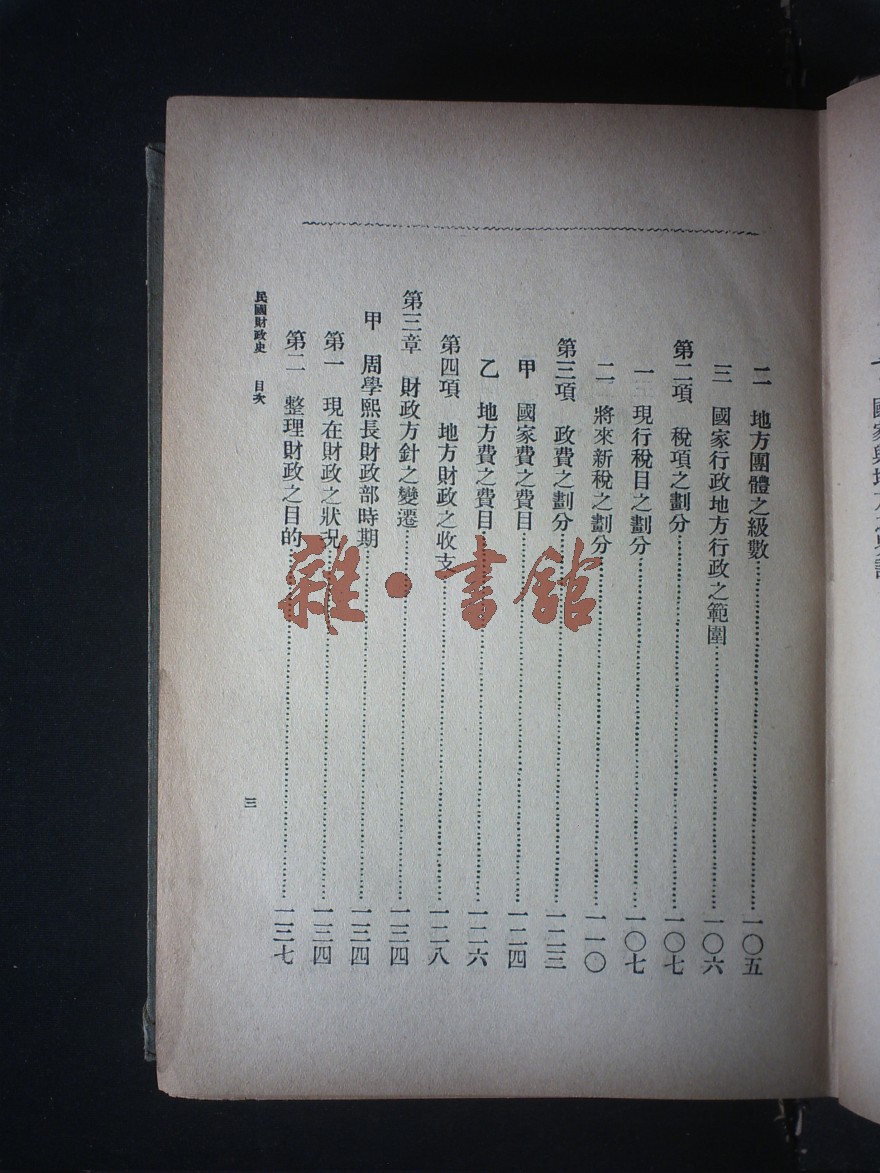 二　地方團體之級數……一〇五
三　國家行政地方行政之範圍……一〇六
第二項　稅項之劃分……一〇七
一　現行稅目之劃分……一〇七
二　將來新稅之劃分……一一〇
第三項　政費之劃分……一二三
甲　國家費之費目……一二四
乙　地方費之費目……一二六
第四項　地方財政之收支……一二八
第三章　財政方針之變遷……一三四
甲　周學熙長財政部時期……一三四
第一　現在財政之狀況……一三四
第二　整理財政之目的……一三七
民國財政史　目次
三
雜·書館